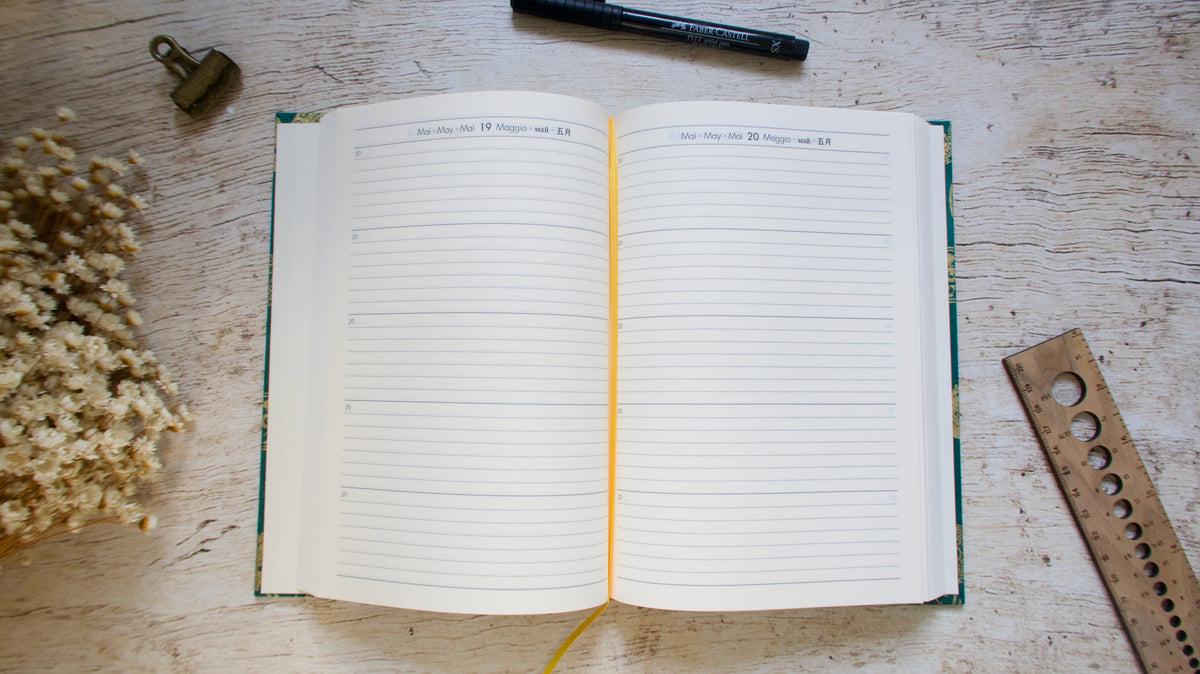 FABER CASTELL
PITT artist pen
XS
Mai - May - Mai 19 Maggio - май - 五月
20
20
20
20
20
Mai - May - Mai 20 Maggio - май - 五月
20
20
20
20
20